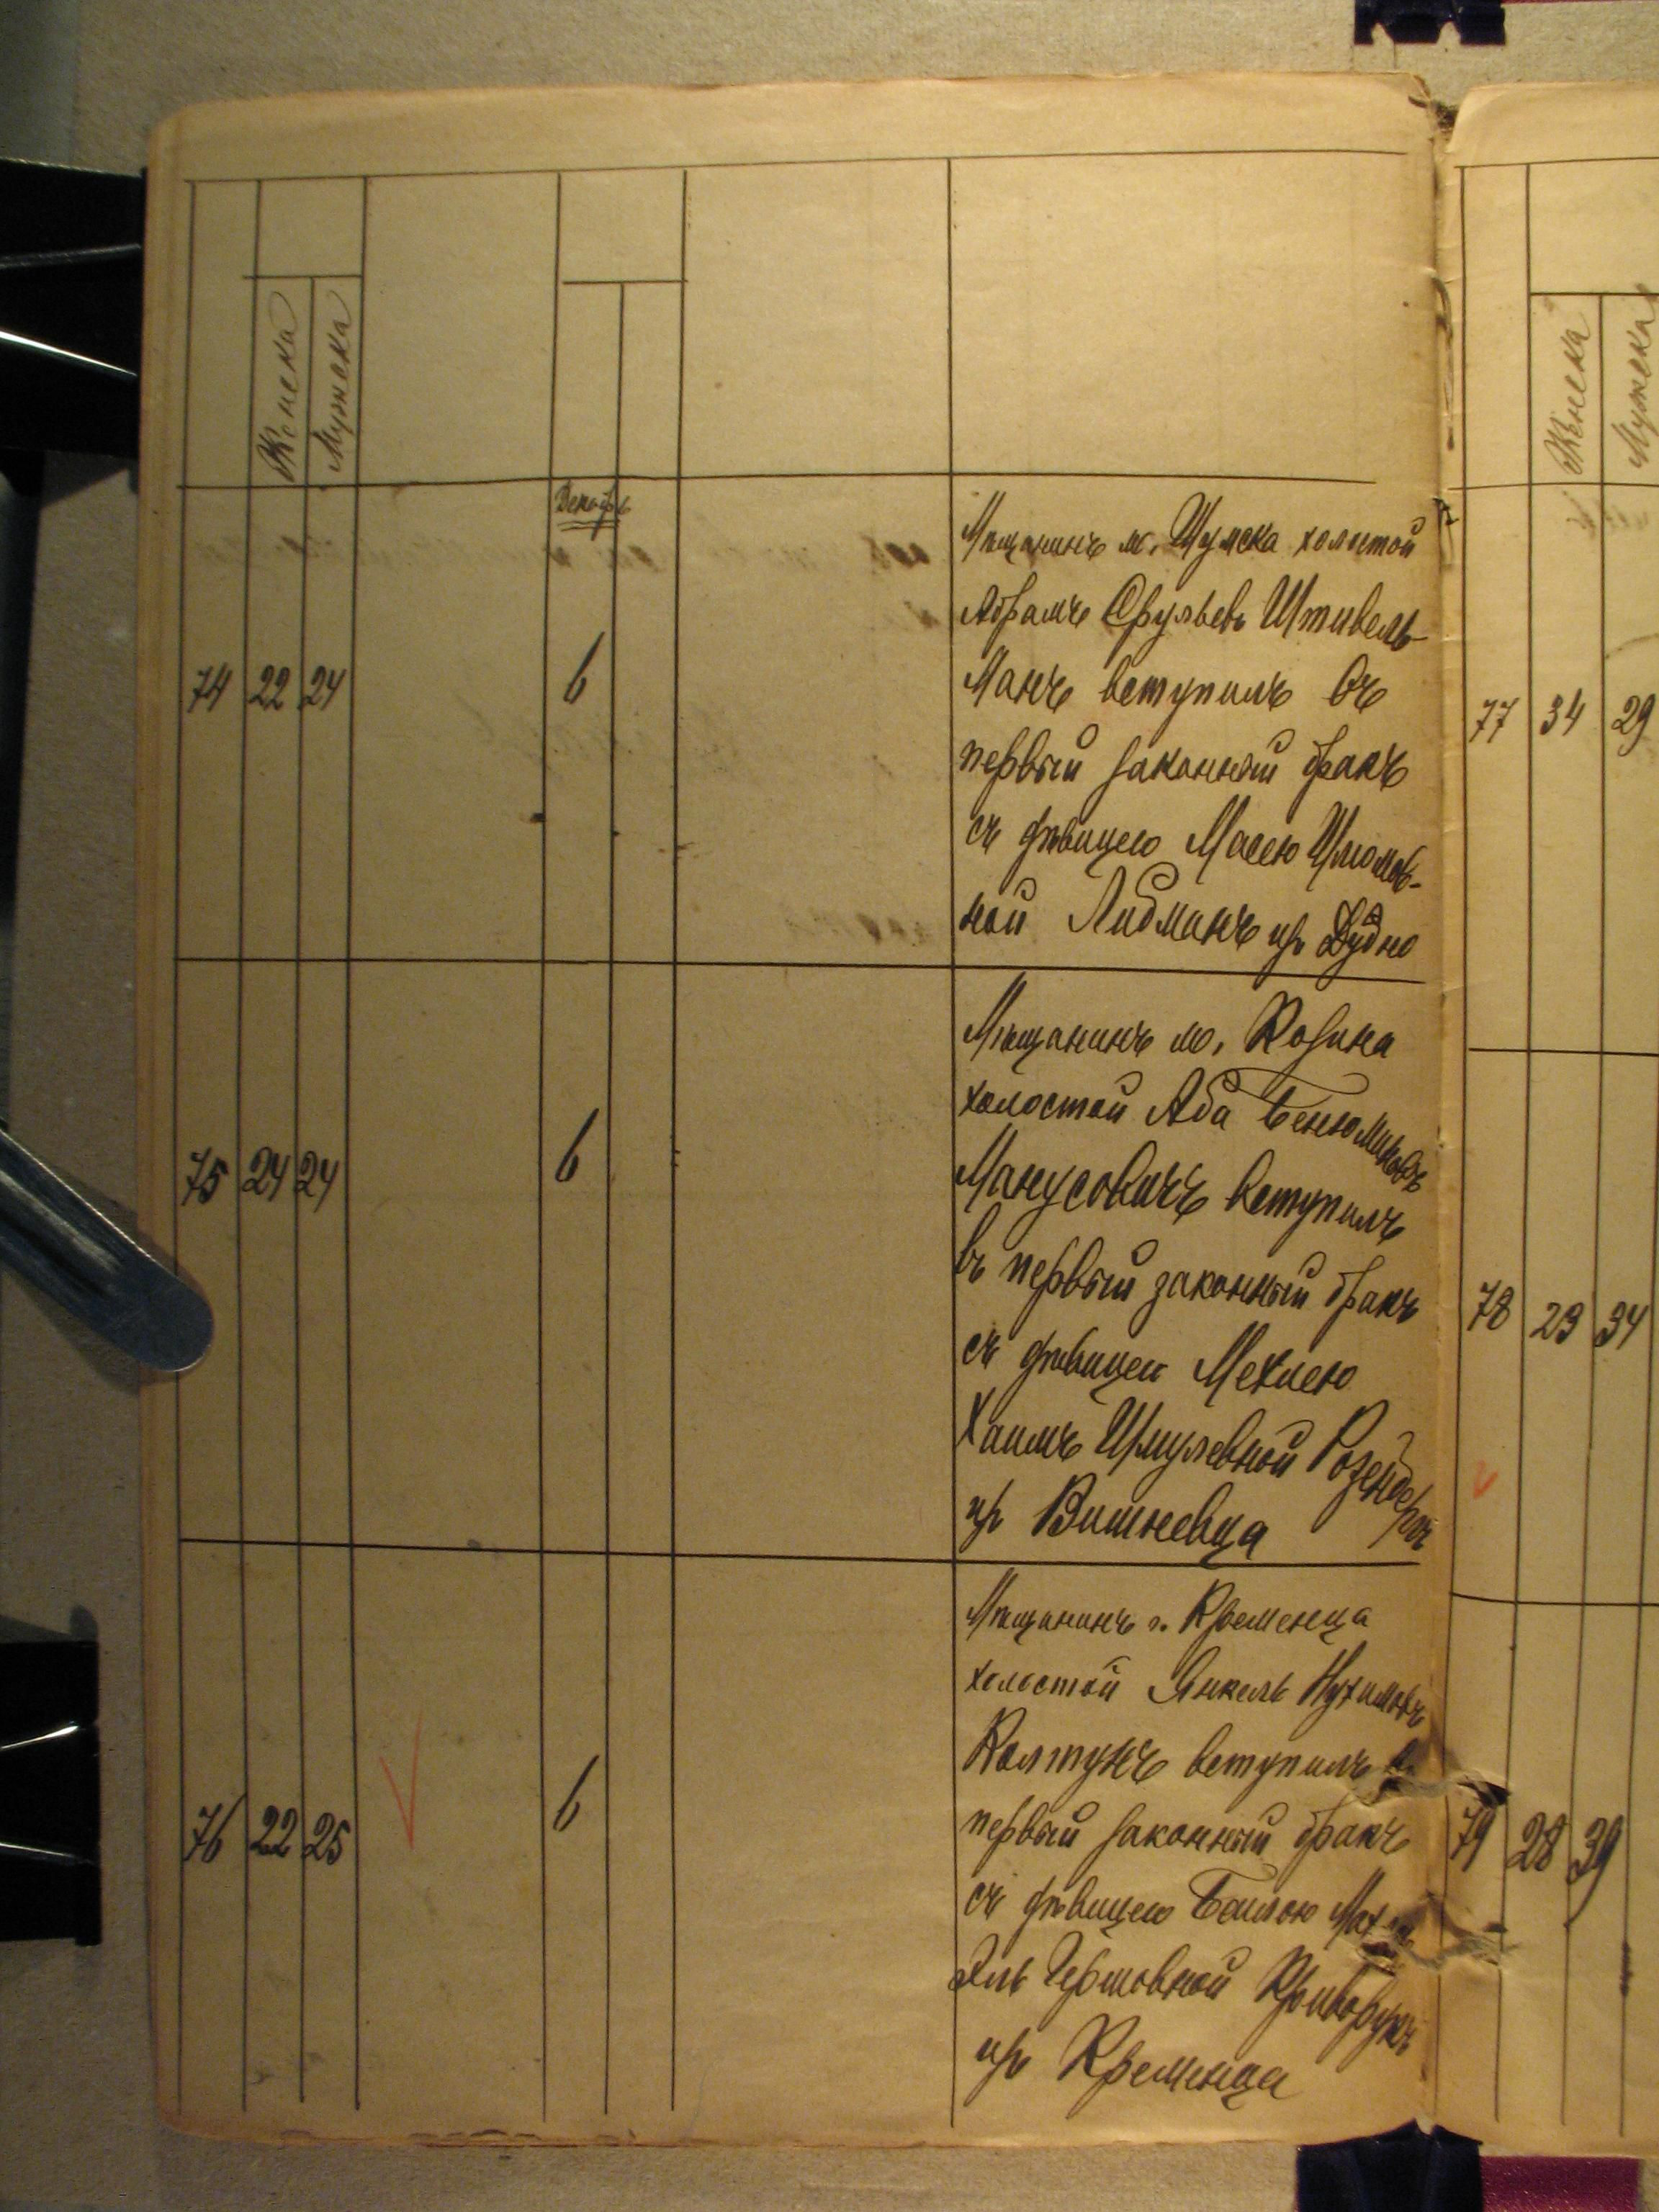 Женска
Мужеска
Декабрь
74 22 24 6
Мѣщанинъ м. Шумска холостой
Абрамъ Срульевъ Штивель-
манъ вступилъ въ
первый законный бракъ
съ дѣвицею Масею Шлiомов-
ной Лидманъ изъ Дудно
75 24 24 6
Мѣщанинъ м. Козина
холостой Аба Бенюминовъ
Манусовичъ вступилъ
въ первый законный бракъ
съ дѣвицею Мехлею
Хаимъ Шмулевной Розенберъ
изъ Вишневца
76 22 25 6
Мѣщанинъ г. Кременца
холостой Янкель Нухимовъ
Колтунъ вступилъ въ
первый законный бракъ
съ дѣвицею Бейлою
Гершовной Криворукъ
изъ Кременца
Женска
Мужска
77 34 29
78 23 34
79 28 39